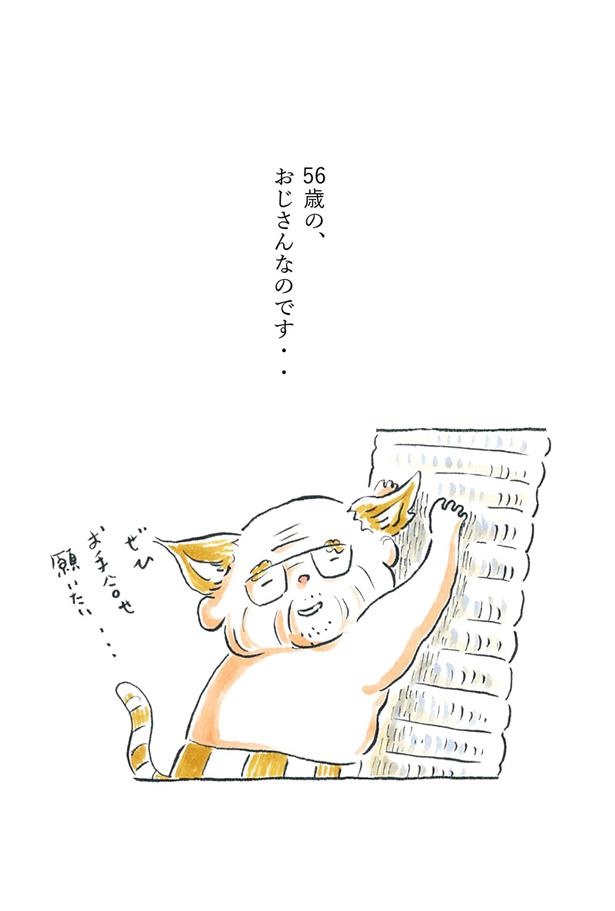 56歳の、
おじさんなのです・・
ぜひ
お手合せ
願いたい・・・